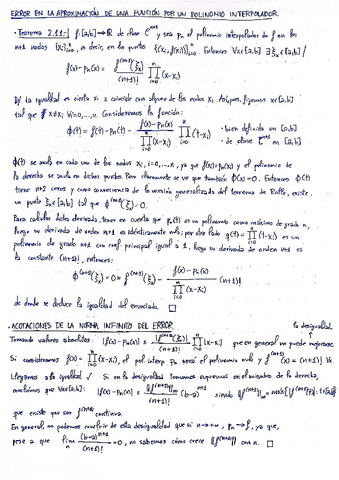 ERROR EN LA APROXIMACIÓN DE UNA FUNCIÓN POR UN POLINOMIO INTERPOLADOR.
• Teorema 2.11-| f:[a,b]→ℝ de clase C^{n+1} y sea p_n el polinomio interpolador de f en los
n+1 nodos {x_i}_{i=0}^n, es decir, en los puntos {(x_i, f(x_i))}_{i=0}^n. Entonces ∀x∈[a,b] ∃ ξ_x∈[a,b] /
f(x)-p_n(x) = f^{(n+1)}(ξ_x)/(n+1)! ∏_{i=0}^n (x-x_i)
D/ La igualdad es cierta si x coincide con alguno de los nodos x_i. Así pues, fijemos x∈[a,b]
tal que x≠x_i ∀i=0,...,n. Consideremos la función:
ϕ(t) = f(t)-p_n(t) - (f(x)-p_n(x))/∏_{i=0}^n (x-x_i) ∏_{i=0}^n (t-x_i) • bien definida en [a,b]
• de clase C^{n+1} en [a,b]
ϕ(t) se anula en cada uno de los nodos x_i, i=0,...,n, ya que f(x_i)=p_n(x_i) y el polinomio de
la derecha se anula en dichos puntos. Pero claramente se ve que también ϕ(x)=0. Entonces ϕ(t)
tiene n+2 ceros y como consecuencia de la versión generalizada del teorema de Rolle, existe
un punto ξ_x∈[a,b] tal que ϕ^{(n+1)}(ξ_x)=0.
Para calcular dicha derivada, tener en cuenta que p_n(t) es un polinomio como máximo de grado n,
luego su derivada de orden n+1 es idénticamente nula; por otro lado q(t)=∏_{i=0}^n (t-x_i) es un
polinomio de grado n+1 con coef principal igual a 1, luego su derivada de orden n+1 es
la constante (n+1)!, entonces:
ϕ^{(n+1)}(ξ_x)=0= f^{(n+1)}(ξ_x) - (f(x)-p_n(x))/∏_{i=0}^n (x-x_i) (n+1)!
de donde se deduce la igualdad del enunciado. □
• ACOTACIONES DE LA NORMA INFINITO DEL ERROR
la desigualdad
Tomando valores absolutos: |f(x)-p_n(x)| = |f^{(n+1)}(ξ_x)|/(n+1)! ∏_{i=0}^n |x-x_i| que en general no puede mejorarse.
Si consideramos f(x)=∏_{i=0}^n (x-x_i), el pol interp p_n será el polinomio nulo y f^{(n+1)}(x)=(n+1)! ∀x
Llegamos a la igualdad ✓ Si en la desigualdad tomamos supremos en el miembro de la derecha,
∀x∈[a,b]: |f(x)-p_n(x)| ≤ ‖f^{(n+1)}‖_∞/(n+1)! (b-a)^{n+1} siendo ‖f^{(n+1)}‖_∞ = máx{|f^{(n+1)}(t)|: t∈[a,b]}
que existe por ser f^{(n+1)} continua.
En general, no podemos concluir de esta desigualdad que si n→∞, p_n→f, ya que,
pese a que lim_{n→∞} (b-a)^{n+1}/(n+1)! =0, no sabemos cómo crece ‖f^{(n+1)}‖ con n. □